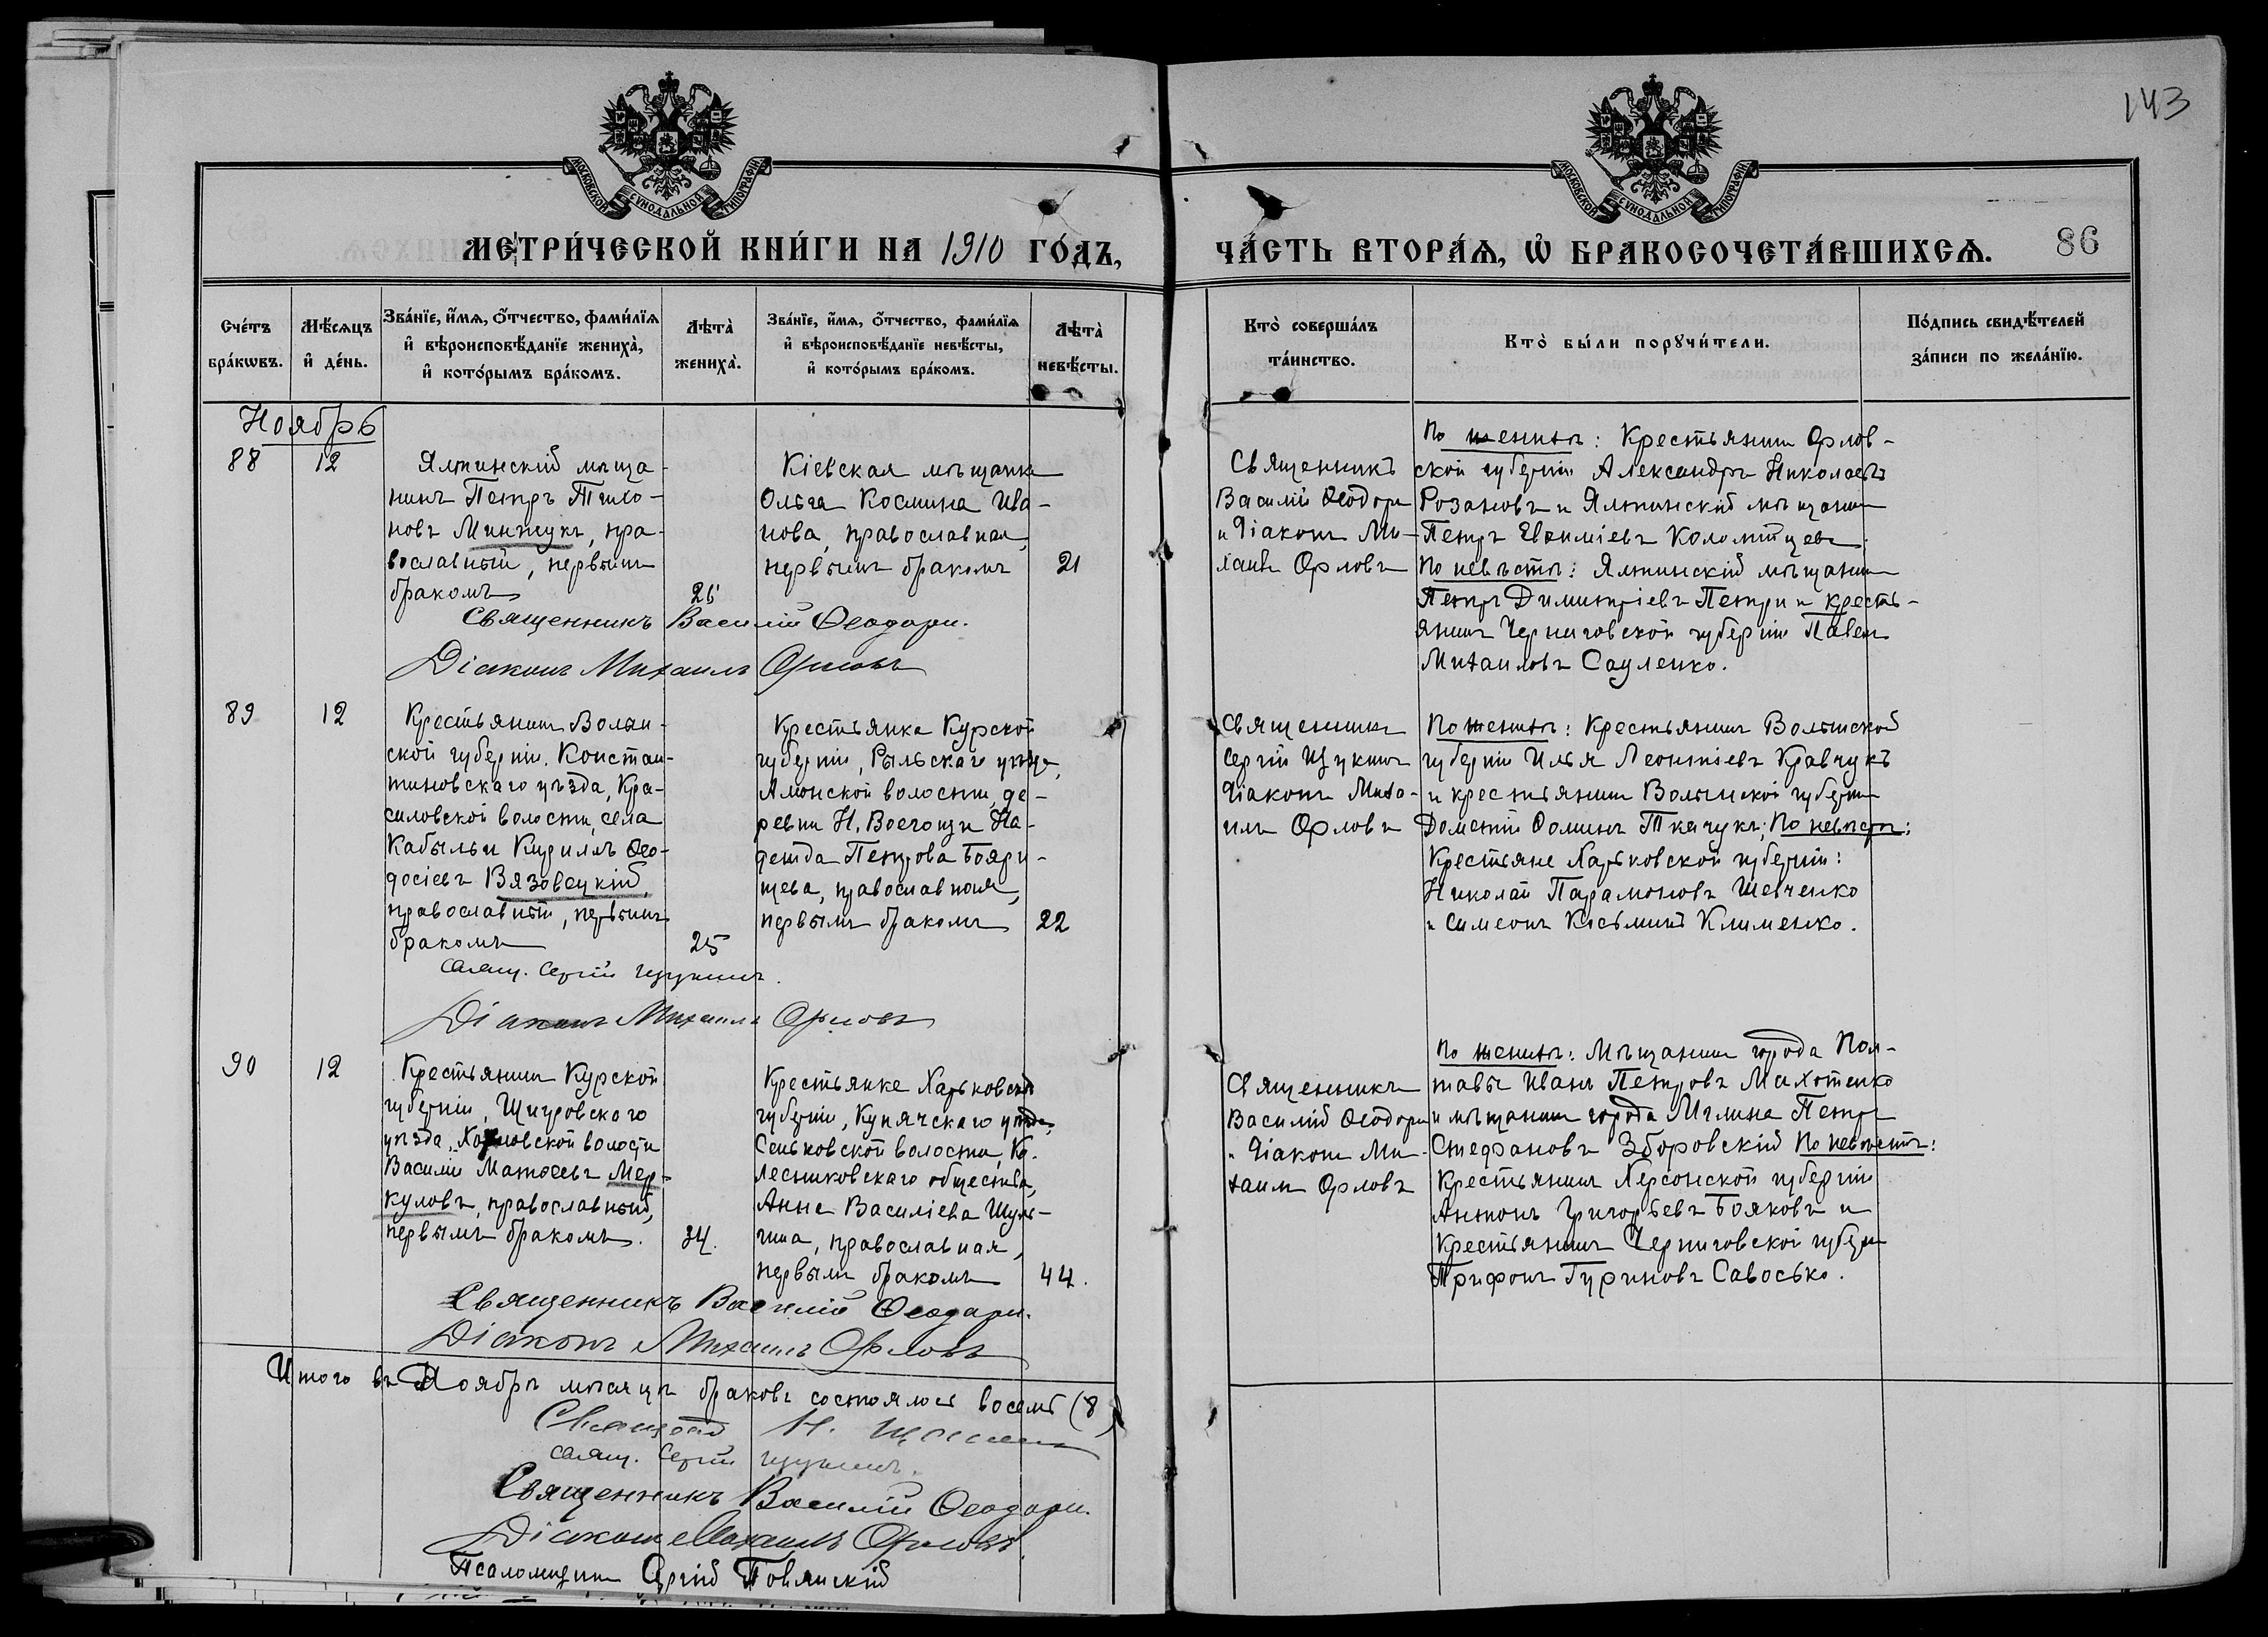 143
МОСКОВСКОЙ СѴНОДАЛЬНОЙ ТИПОГРАФІИ
МОСКОВСКОЙ СѴНОДАЛЬНОЙ ТИПОГРАФІИ
МЕТРИ́ЧЕСКОЙ КНИ́ГИ НА 1910 ГО́ДЪ,
ЧА́СТЬ ВТОРА́Ѧ, Ѡ҆ БРАКОСОЧЕТА́ВШИХСѦ.
86
Сче́тъ бра́кѡвъ.
Мѣ́сѧцъ и҆ де́нь.
Зва́нїе, и҆́мѧ, ѻ҆́тчество, фами́лїѧ
и҆ вѣроисповѣ́данїе жениха̀,
и҆ кото́рымъ бра́комъ.
Лѣта̀ жениха̀.
Зва́нїе, и҆́мѧ, ѻ҆́тчество, фами́лїѧ
и҆ вѣроисповѣ́данїе невѣ́сты,
и҆ кото́рымъ бра́комъ.
Лѣта̀ невѣ́сты.
Кто̀ соверша́лъ
та́инство.
Кто̀ бы́ли порꙋчи́тели.
По́дпись свидѣ́телей
за́писи по жела́нїю.
Ноябрь
88
12
Ялтинскій мѣща-
нинъ Петръ Тихо-
новъ Минжукъ, пра-
вославный, первымъ
бракомъ
26
Кіевская мѣщанка
Ольга Космина Ива-
нова, православная,
первымъ бракомъ
21
Священникъ Василій Ѳеодори.
Діаконъ Михаилъ Орловъ
Священникъ
Василій Ѳеодори
и Діаконъ Ми-
хаилъ Орловъ
По женихѣ: Крестьянинъ Орлов-
ской губерніи Александръ Николаевъ
Розановъ и Ялтинскій мѣщанинъ
Петръ Евѳиміевъ Коломійцевъ
По невѣстѣ: Ялтинскій мѣщанинъ
Петръ Димитріевъ Петри и кресть-
янинъ Черниговской губерніи Павелъ
Михаиловъ Сауленко.
89
12
Крестьянинъ Волын-
ской губерніи, Констан-
тиновскаго уѣзда, Кра-
силовской волости, села
Кабыльи Кириллъ Ѳео-
досіевъ Вязовецкій,
православный, первымъ
бракомъ
25
Крестьянка Курской
губерніи, Рыльскаго уѣзда,
Амонской волости, де-
ревни Н. Воегощи На-
дежда Петрова Бояри-
щева, православная,
первымъ бракомъ
22
Свящ. Сергій Щукинъ.
Діаконъ Михаилъ Орловъ
Священникъ
Сергій Щукинъ
Діаконъ Миха-
илъ Орловъ
По женихѣ: Крестьянинъ Волынской
губерніи Илья Леонтіевъ Кравчукъ
и крестьянинъ Волынской губерніи
Дометій Ѳоминъ Ткачукъ; По невѣстѣ:
Крестьяне Харьковской губерніи:
Николай Парамоновъ Шевченко
и Симеонъ Косьминъ Клименко.
90
12
Крестьянинъ Курской
губерніи, Щигровскаго
уѣзда, волости
Василій Матѳеевъ Мер-
куловъ, православный,
первымъ бракомъ.
34.
Крестьянка Харьковской
губерніи, Купянскаго уѣзда,
Сеньковской волости, Ко-
лесниковскаго общества,
Анна Василіева Шуль-
гина, православная,
первымъ бракомъ
44.
Священникъ Василій Ѳеодори.
Діаконъ Михаилъ Орловъ
Священникъ
Василій Ѳеодори
и Діаконъ Ми-
хаилъ Орловъ
По женихѣ: Мѣщанинъ города Пол-
тавы Иванъ Петровъ Махотенко
и мѣщанинъ города Мглина Петръ
Стефановъ Зборовскій По невѣстѣ:
Крестьянинъ Херсонской губерніи
Антонъ Григорьевъ Бояковъ и
Крестьянинъ Черниговской губерніи
Трифонъ Гуриновъ Савосько.
Итого въ Ноябрѣ мѣсяцѣ браковъ состоялось восемь (8)
Н.
Свящ. Сергій Щукинъ.
Священникъ Василій Ѳеодори.
Діаконъ Михаилъ Орловъ.
Псаломщикъ Сергій